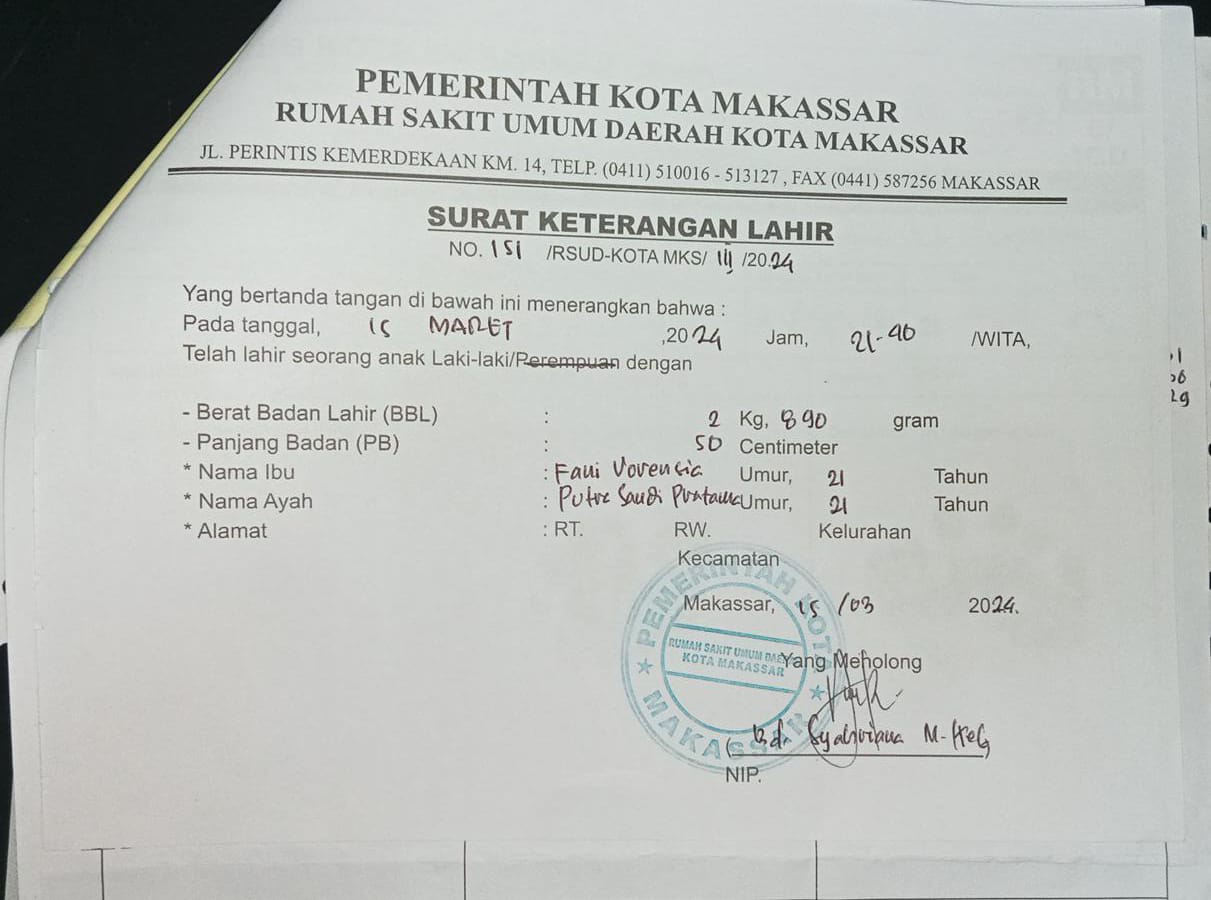 PEMERINTAH KOTA MAKASSAR
RUMAH SAKIT UMUM DAERAH KOTA MAKASSAR
JL. PERINTIS KEMERDEKAAN KM. 14, TELP. (0411) 510016 - 513127 , FAX (0441) 587256 MAKASSAR
SURAT KETERANGAN LAHIR
NO. 151 /RSUD-KOTA MKS/ III /2024
Yang bertanda tangan di bawah ini menerangkan bahwa :
Pada tanggal, 15 MARET ,2024 Jam, 21-40 /WITA,
Telah lahir seorang anak Laki-laki/Perempuan dengan
- Berat Badan Lahir (BBL) : 2 Kg, 890 gram
- Panjang Badan (PB) : 50 Centimeter
* Nama Ibu : Fani Vorensia Umur, 21 Tahun
* Nama Ayah : Putra Saudi Pratama Umur, 21 Tahun
* Alamat : RT. RW. Kelurahan
Kecamatan
Makassar, 15 /03 2024.
Yang Menolong
PEMERINTAH KOTA
RUMAH SAKIT UMUM DAE
KOTA MAKASSAR
MAKASSAR
( Bd. M-Keb
NIP.